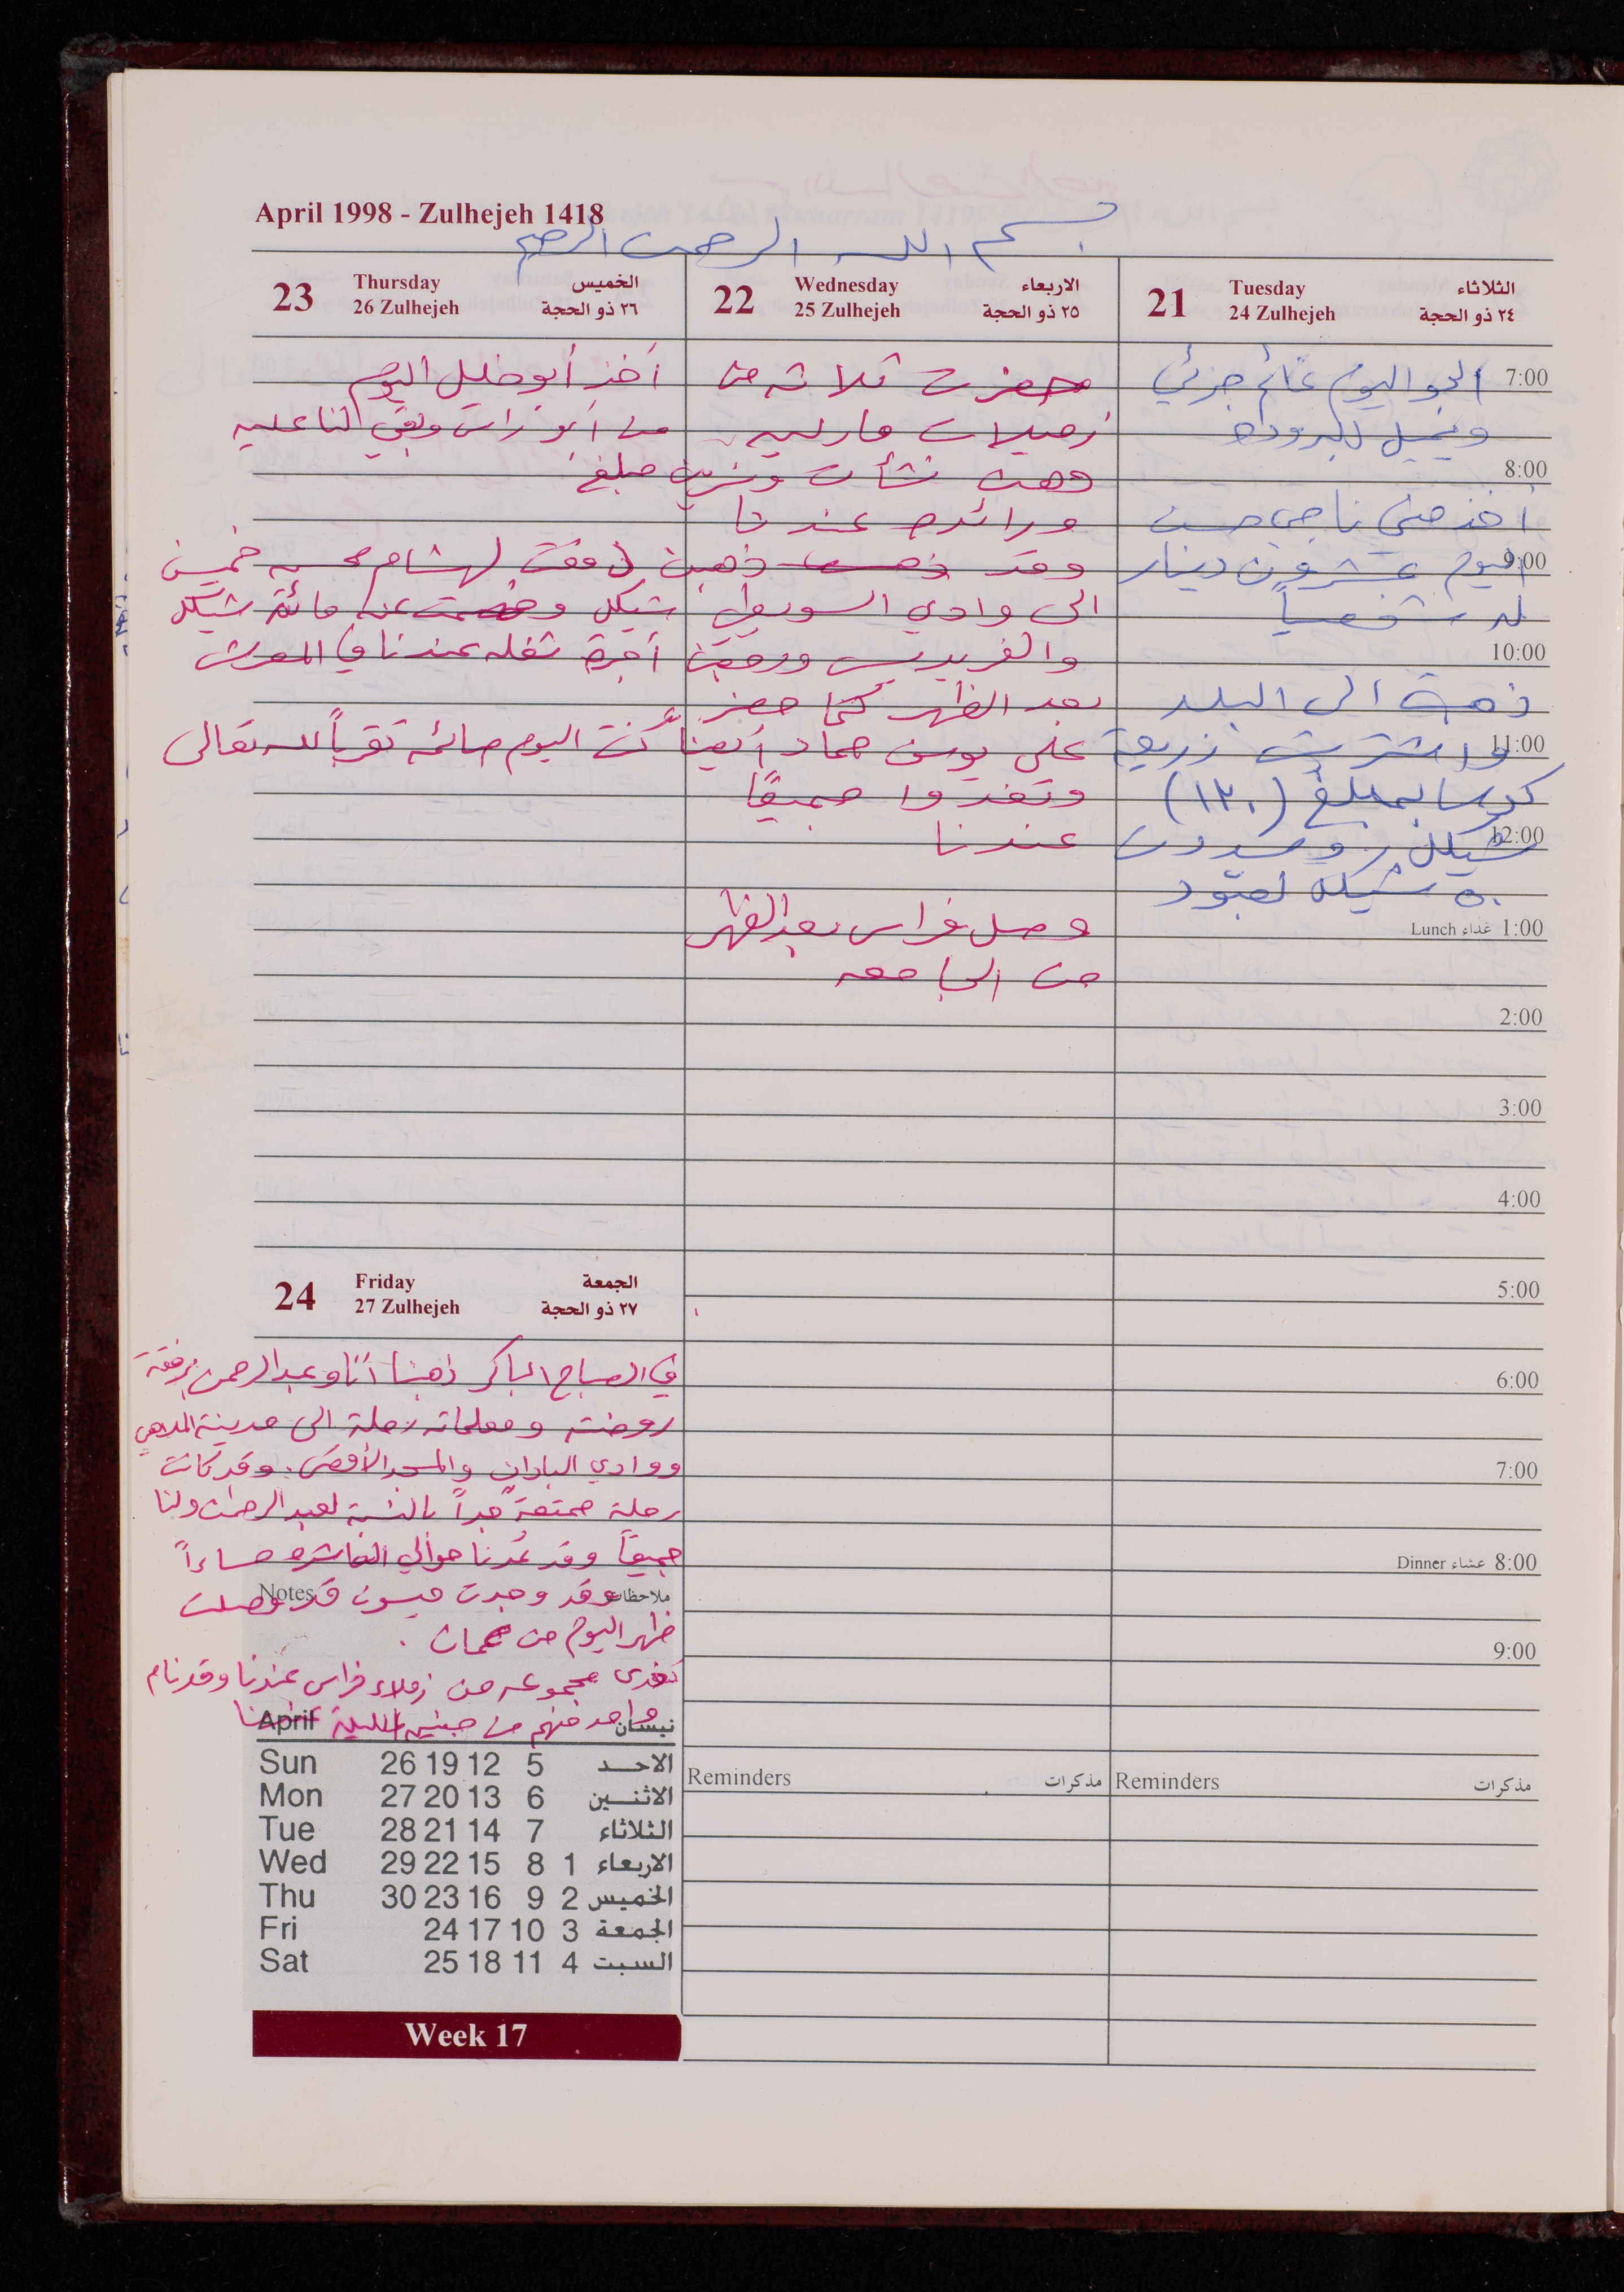 April 1998 - Zulhejeh 1418
بسم الله الرحمن الرحيم
21 Tuesday الثلاثاء
24 Zulhejeh ٢٤ ذو الحجة
7:00 الجو اليوم غائم جزئي
ويميل للبرودة
8:00
أخذ مني ناجي حسن
9:00 اليوم عشرون دينار
له شخصياً
10:00
ذهبت الى البلد
11:00 واشتريت زريعة
كوسا بمبلغ (١٢٠)
12:00 شيكل وسددت
٥٠ شيكل لعبود
1:00 غداء Lunch
2:00
3:00
4:00
5:00
6:00
7:00
8:00 عشاء Dinner
9:00
Reminders مذكرات
22 Wednesday الاربعاء
25 Zulhejeh ٢٥ ذو الحجة
حضرت ثلاثة من
زميلات
وهن نشأت ونسرين
ورائدة عندنا
وقد ذهبت ذهبن
الى وادي
والفريديس ورجعن
بعد الظهر كما حضر
علي يوسف حماد أيضاً
وتغدوا جميعًا
عندنا
وصل فراس بعد الظهر
من الجامعه
Reminders مذكرات
23 Thursday الخميس
26 Zulhejeh ٢٦ ذو الحجة
أخذ أبو خليل اليوم
من أبو رأفت وبقي لنا عليه
مبلغ
دفعت لهشام خمسين
شيكل عن مائة شيكل
أجرة شغله عندنا في
كنت اليوم صائمه تقرباً لله تعالى
24 Friday الجمعة
27 Zulhejeh ٢٧ ذو الحجة
في الصباح الباكر ذهبنا أنا وعبد الرحمن برفقة
روضته ومعلماته رحلة الى مدينة الملاهي
ووادي البادان والمسجد الأقصى. وقد كانت
رحلة ممتعة جداً بالنسبة لعبد الرحمن ولنا
جميعاً وقد عدنا حوالي العاشره مساءاً
Notes ملاحظات
وقد وجدت ميسون قد وصلت
ظهر اليوم من عمان .
تغدى مجموعه من زملاء فراس عندنا وقد نام
واحد منهم من جنين الليلة عندنا
April نيسان
Sun 26 19 12 5 الاحـد
Mon 27 20 13 6 الاثنـين
Tue 28 21 14 7 الثلاثاء
Wed 29 22 15 8 1 الاربعاء
Thu 30 23 16 9 2 الخميس
Fri 24 17 10 3 الجمعة
Sat 25 18 11 4 السبت
Week 17